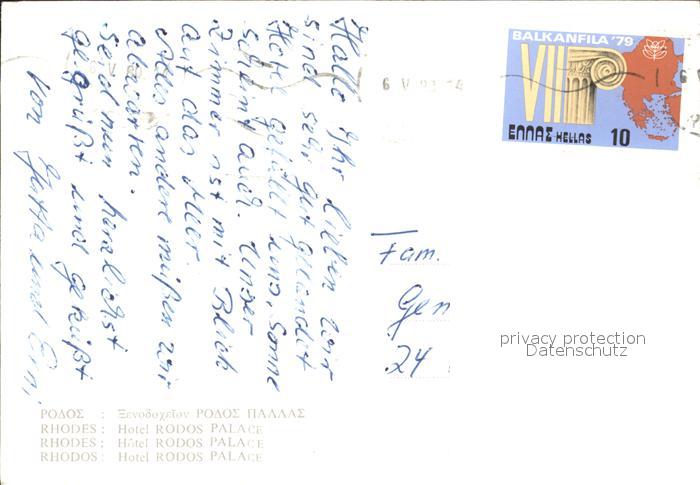 Hallo Ihr Lieben wir
sind sehr gut gelandet
Hotel gefällt uns, Sonne
scheint auch. Unser
Zimmer ist mit Blick
auf das Meer.
Alles andere müßen wir
abwarten.
Seid nun herzlichst
gegrüßt und geküßt
von Jutta und Erni
BALKANFILA '79
VIII
ΕΛΛΑΣ HELLAS 10
6 V
Fam.
Gen
24
privacy protection
Datenschutz
ΡΟΔΟΣ : Ξενοδοχεῖον ΡΟΔΟΣ ΠΑΛΛΑΣ
RHODES : Hotel RODOS PALACE
RHODES : Hôtel RODOS PALACE
RHODOS : Hotel RODOS PALACE